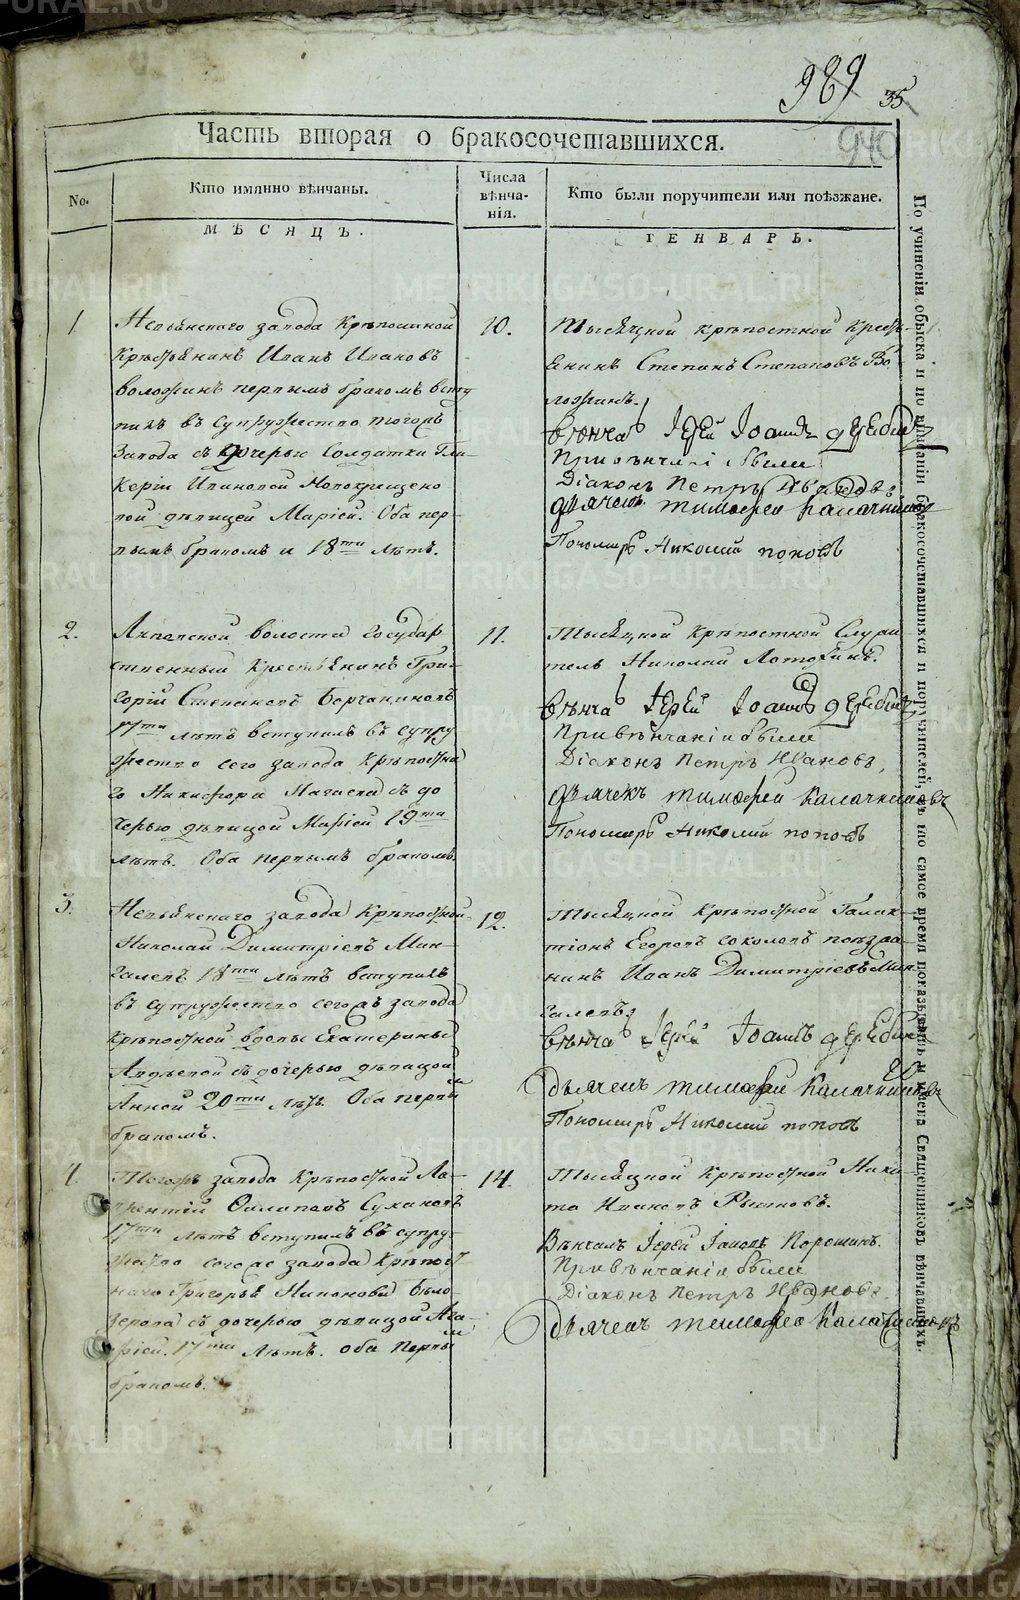 989
35
940
Часть вторая о бракосочетавшихся.
No.
Кто имянно вѣнчаны.
Числа
вѣнча-
нія.
Кто были поручители или поѣзжане.
МѢСЯЦЪ.
ГЕНВАРЬ.
1
Невьянскаго завода Крѣпостной
Крѣстьянинъ Иванъ Ивановъ
Воложинъ первымъ бракомъ всту
пилъ въ супружество тогожъ
Завода съ дочерью Солдатки Гли-
керіи Ивановой Новокрещено
вой дѣвицей Маріей. Оба пер-
вымъ бракомъ и 18ти лѣтъ.
10.
Тысяцкой крѣпостной Крестъ-
янинъ Степанъ Степановъ Во-
ложинъ.
Вѣнча Іерей Іоаннъ
При вѣнчаніи были
Діаконъ Петръ Ивановъ
дьячекъ Тимофей Калачниковъ
Пономарь Николай Поповъ
2.
волости Государ
ственный Крестьянинъ Гри-
горій Степановъ Борчаниновъ
17ти лѣтъ вступилъ въ супру
жество сего завода Крѣпостна
го Никифора съ до
черью дѣвицой Маріей 19ти
лѣтъ. Оба первымъ бракомъ.
11.
Тысяцкой Крѣпостной Служи
тель Николай
Вѣнча Іерей Іоаннъ
При вѣнчаніи были
Діаконъ Петръ Ивановъ,
дьячекъ Тимофей Калачниковъ
Пономарь Николай Поповъ
3.
Невьянскаго завода Крѣпостной
Николай Димитріевъ Мин-
галевъ 18ти лѣтъ вступилъ
въ супружество сегожъ завода
Крѣпостной вдовы Екатерины
съ дочерью дѣвицой
Анной 20ти лѣтъ. Оба первы
бракомъ.
12.
Тысяцкой Крѣпостной Галак-
тіонъ Егоровъ Соколовъ поѣзжа-
нинъ Иванъ Димитріевъ Мин
галевъ
Вѣнча Іерей Іоаннъ
дьячекъ Тимофей Калачниковъ
Пономарь Николай Поповъ
4.
Тогожъ завода Крѣпостной Ла-
врентій Суханов
17ти лѣтъ вступилъ въ супру-
жество завода Крѣпост
наго Григорья Бѣло-
зерова съ дочерью дѣвицой Ага-
фіей. 17ти лѣтъ. Оба первы
бракомъ.
14.
Тысяцкой Крѣпостной Ники-
та Ивановъ
Вѣнчалъ Іерей Іаковъ Порошинъ.
При вѣнчаніи были
Діаконъ Петръ Ивановъ
дьячекъ Тимофей Калачниковъ
По учиненіи обыска и по вписаніи бракосочетавшихся и поручителей, въ то самое время показывать и имена Священниковъ вѣнчавшихъ.
METRIKI.GASO-URAL.RU